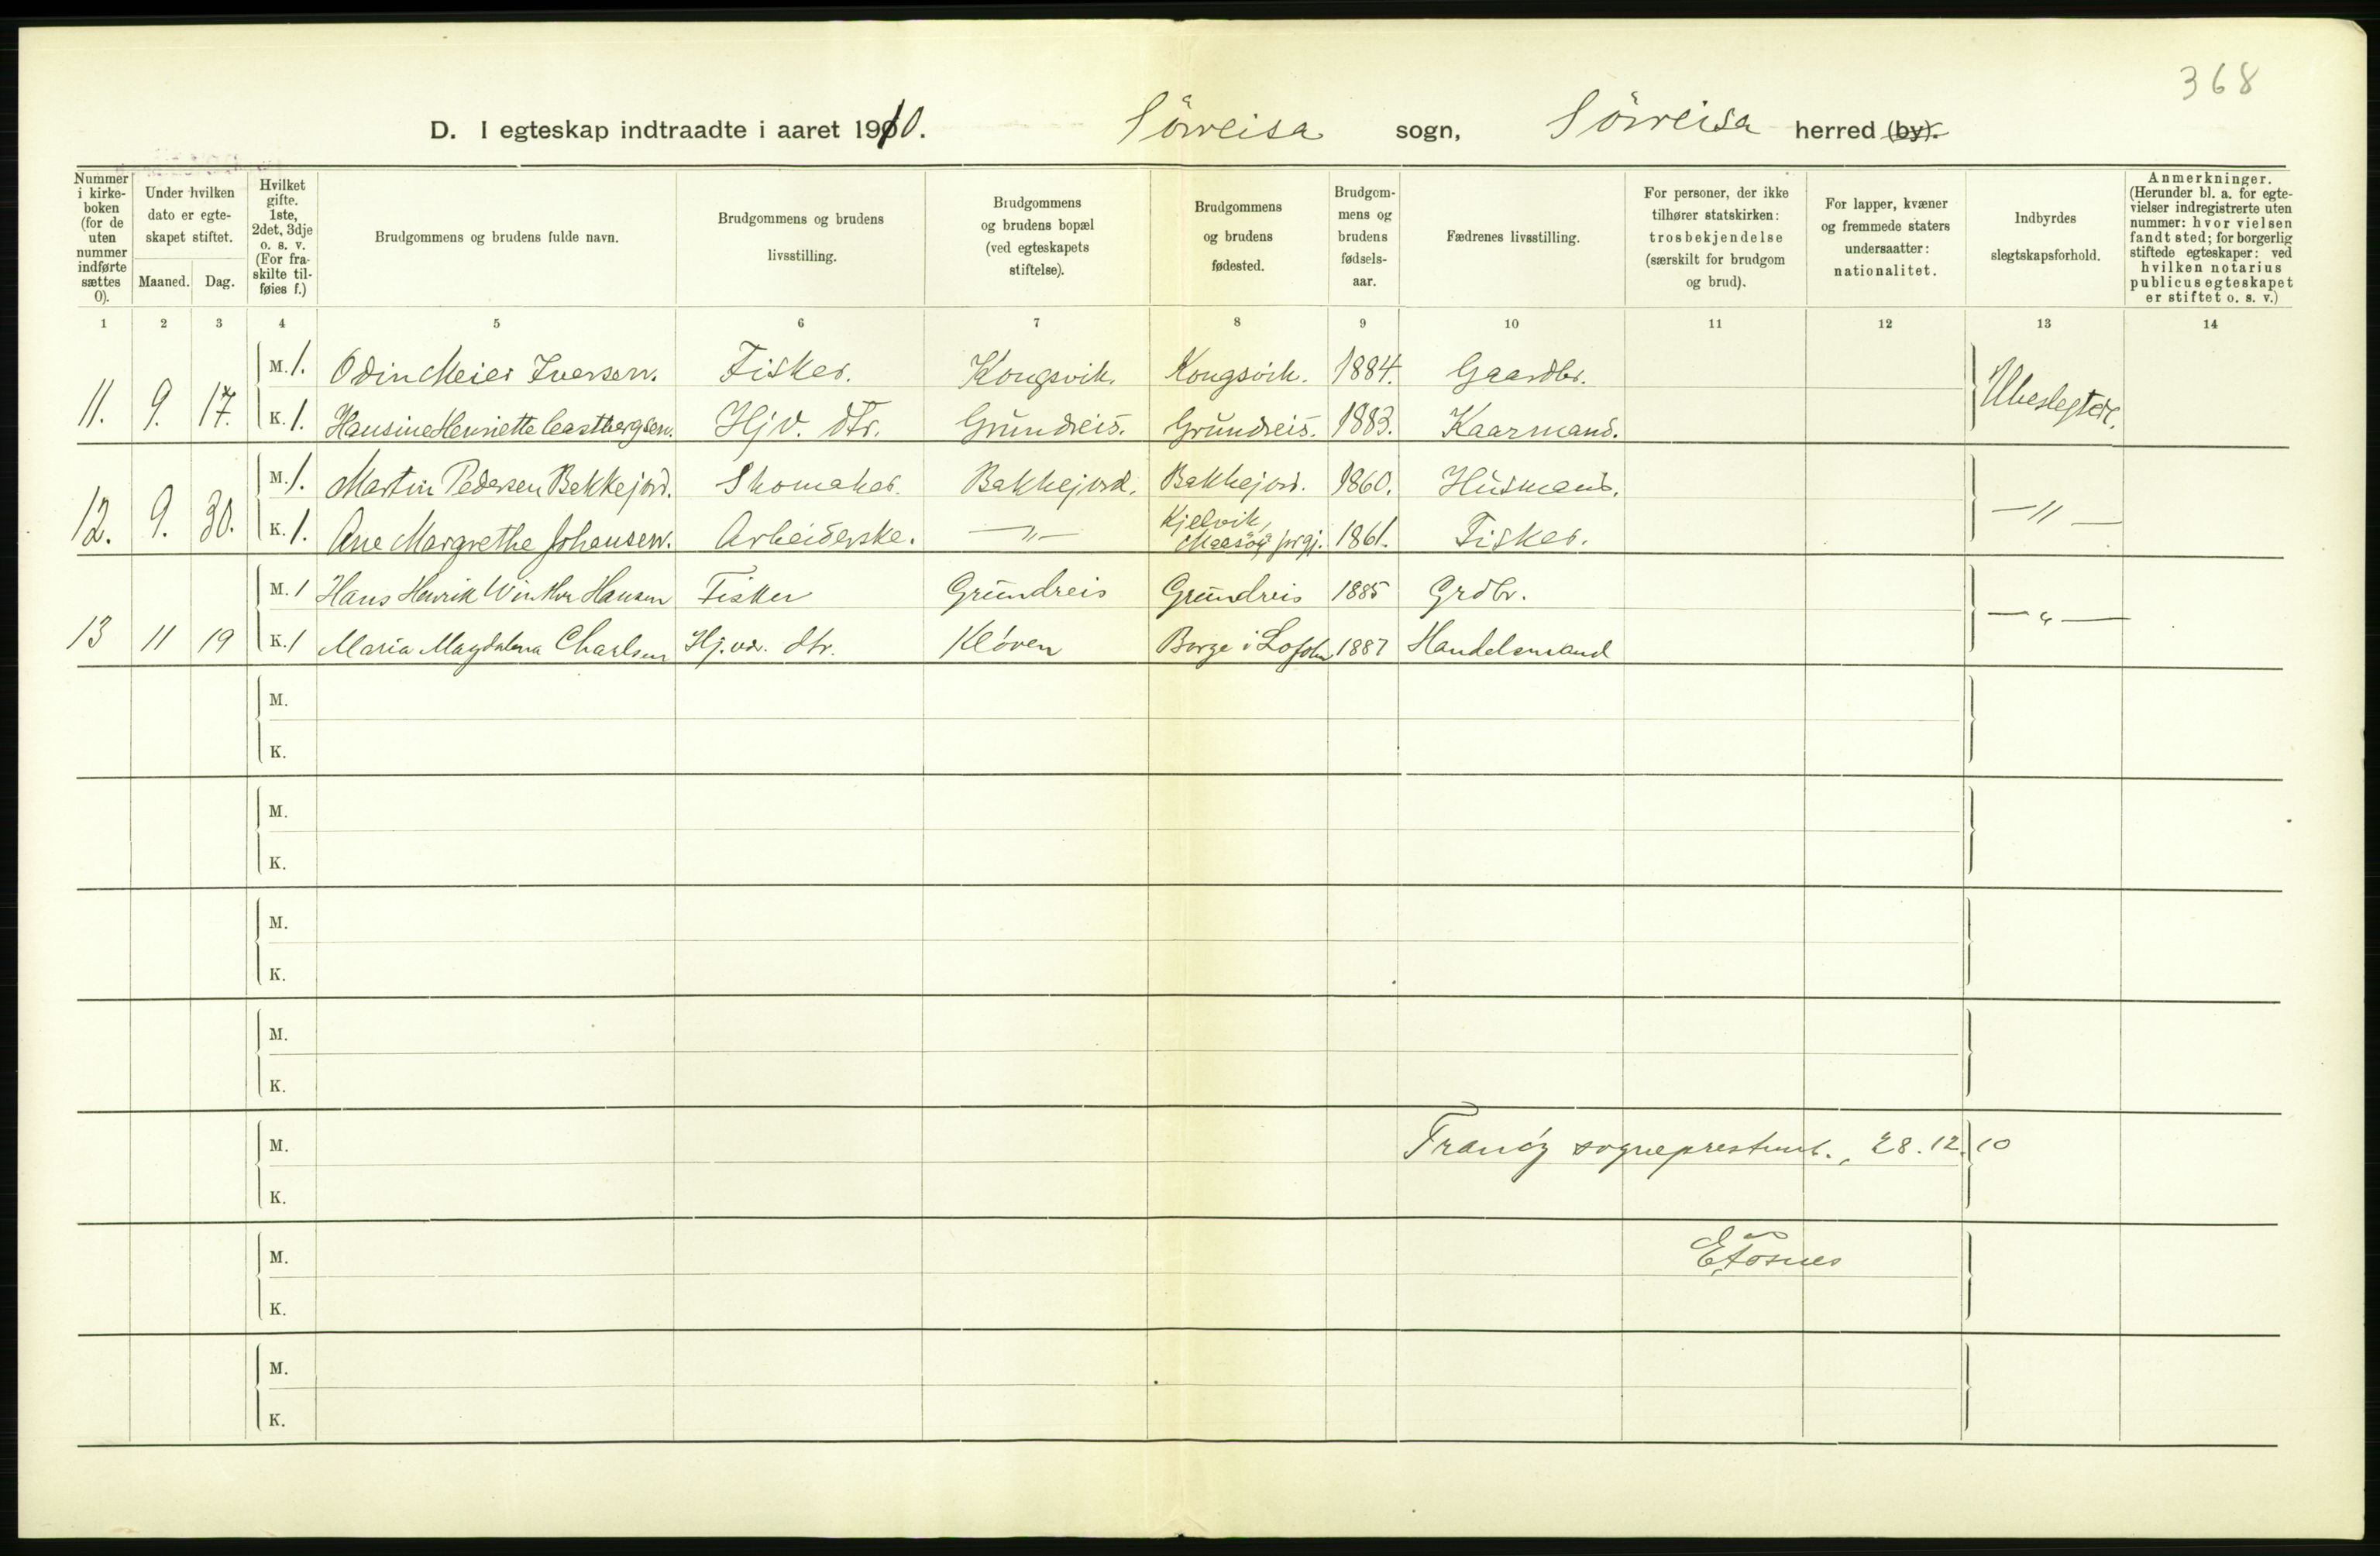 368
D. I egteskap indtraadte i aaret 1910. Sörreisa sogn, Sörreisa herred (by).
Nummer i kirkeboken (for de uten nummer indførte sættes 0).
Under hvilken dato er egteskapet stiftet.
Maaned. Dag.
Hvilket gifte. 1ste, 2det, 3dje o. s. v. (For fraskilte tilføies f.)
Brudgommens og brudens fulde navn.
Brudgommens og brudens livsstilling.
Brudgommens og brudens bopæl (ved egteskapets stiftelse).
Brudgommens og brudens fødested.
Brudgommens og brudens fødselsaar.
Fædrenes livsstilling.
For personer, der ikke tilhører statskirken: trosbekjendelse (særskilt for brudgom og brud).
For lapper, kvæner og fremmede staters undersaatter: nationalitet.
Indbyrdes slegtskapsforhold.
Anmerkninger. (Herunder bl. a. for egtevielser indregistrerte uten nummer: hvor vielsen fandt sted; for borgerlig stiftede egteskaper: ved hvilken notarius publicus egteskapet er stiftet o. s. v.)
1 2 3 4 5 6 7 8 9 10 11 12 13 14
M. 1. Odin Meier Iversen. Fisker. Kongsvik. Kongsvik. 1884. Gaardbr.
11. 9. 17. Ubeslegtede.
K. 1. Hansine Henriette Castbergsen. Hjv. dtr. Grundreis. Grundreis. 1883. Kaarmand.
M. 1. Martin Pedersen Bakkejord. Skomaker. Bakkejord. Bakkejord. 1860. Husmand.
12. 9. 30. —"—
K. 1. Ane Margrethe Johansen. Arbeiderske. —"— Kjelvik, Maasöy prgj. 1861. Fisker.
M. 1 Hans Henrik Winther Hansen Fisker Grundreis Grundreis 1885 Grdbr.
13 11 19 —"—
K. 1 Maria Magdalena Charlsen Hj. vær. dtr. Kløven Borge i Lofoten 1887 Handelsmand
M.
K.
M.
K.
M.
K.
M.
K.
M. Tranøy sogneprestemb., 28.12.10
K.
M. E Fosnes
K.
M.
K.